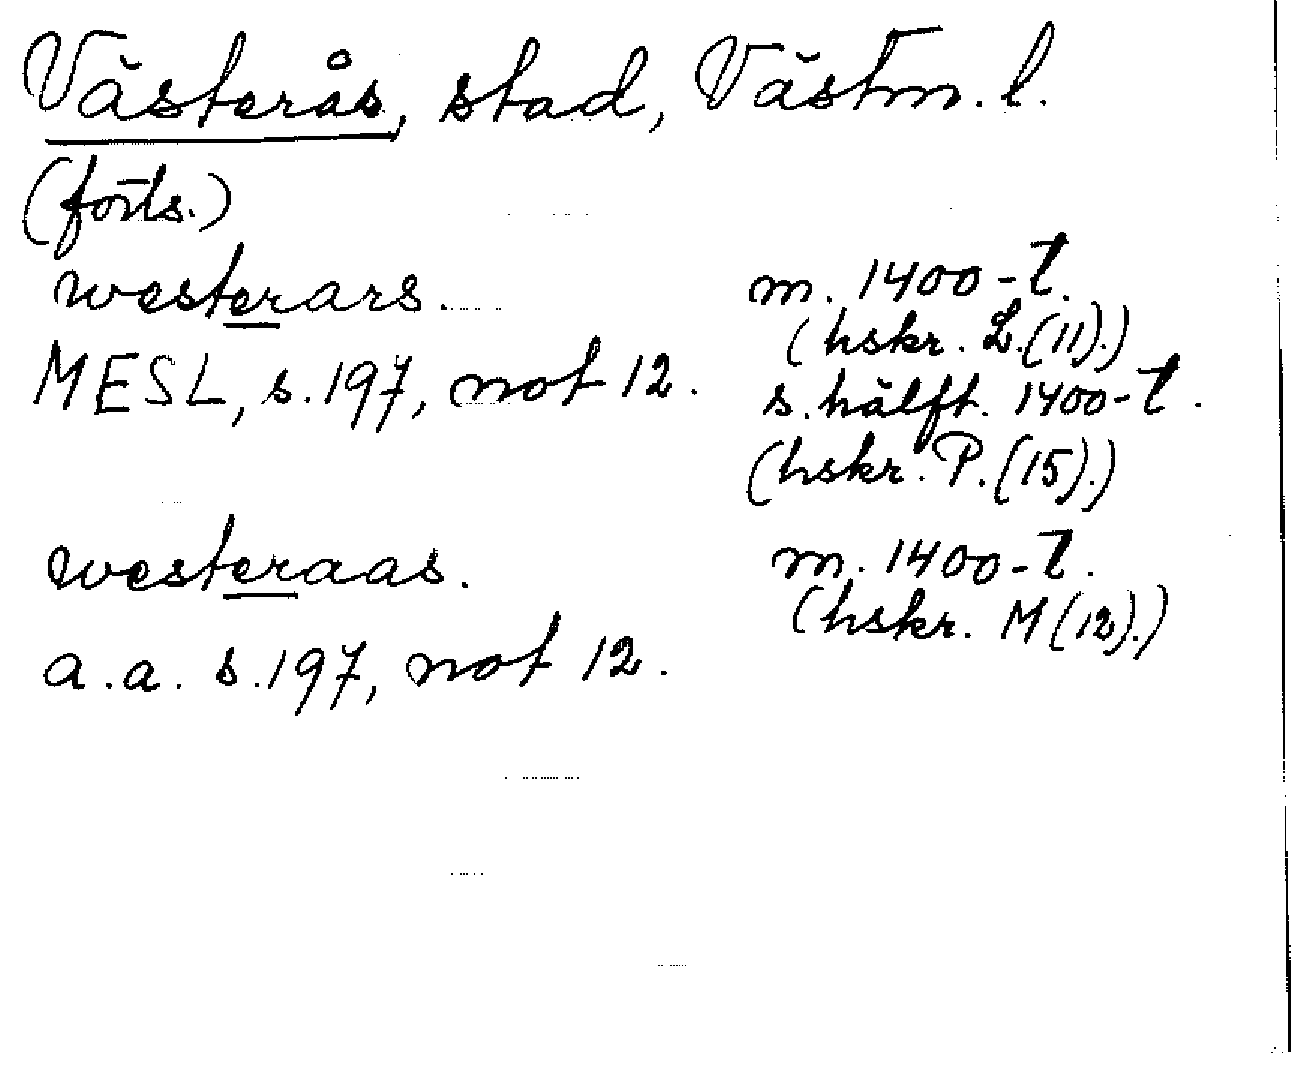 Västerås, stad, Västm. l.
(forts.)
westerars. m. 1400-t.
(hskr. L. (11).)
MESL, s. 197, not 12. s. hälft. 1400-t.
(hskr. P. (15).)
westeraas. m. 1400-t.
(hskr. M (12).)
a. a. s. 197, not 12.